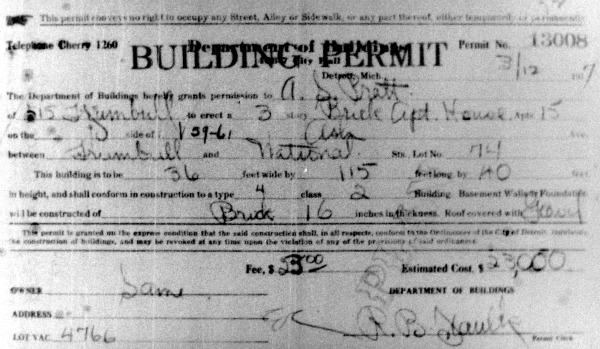 This permit conveys no right to occupy any Street, Alley or Sidewalk, or any part thereof, either temporarily or permanently
Telephone Cherry 1260 Department of Buildings Permit No. 13008
BUILDING PERMIT
City Hall
Detroit, Mich. 3/12 1917
The Department of Buildings hereby grants permission to A. S. Pratt
of 515 Trumbull to erect a 3 story Brick Apt. House, Apts 15
on the side of 59-61 Ave.
between Trumbull and National Sts. Lot No. 74
This building is to be 36 feet wide by 115 feet long by 40 feet
in height, and shall conform in construction to a type 4 class 2 Building. Basement Walls or Foundation
will be constructed of Brick 16 inches in thickness. Roof covered with Gravel
This permit is granted on the express condition that the said construction shall, in all respects, conform to the Ordinances of the City of Detroit, regulating
the construction of buildings, and may be revoked at any time upon the violation of any of the provisions of said ordinances.
Fee, $ 23.00 Estimated Cost, $ 23,000
OWNER Same DEPARTMENT OF BUILDINGS
ADDRESS
LOT VAC 4766 R. B. Permit Clerk